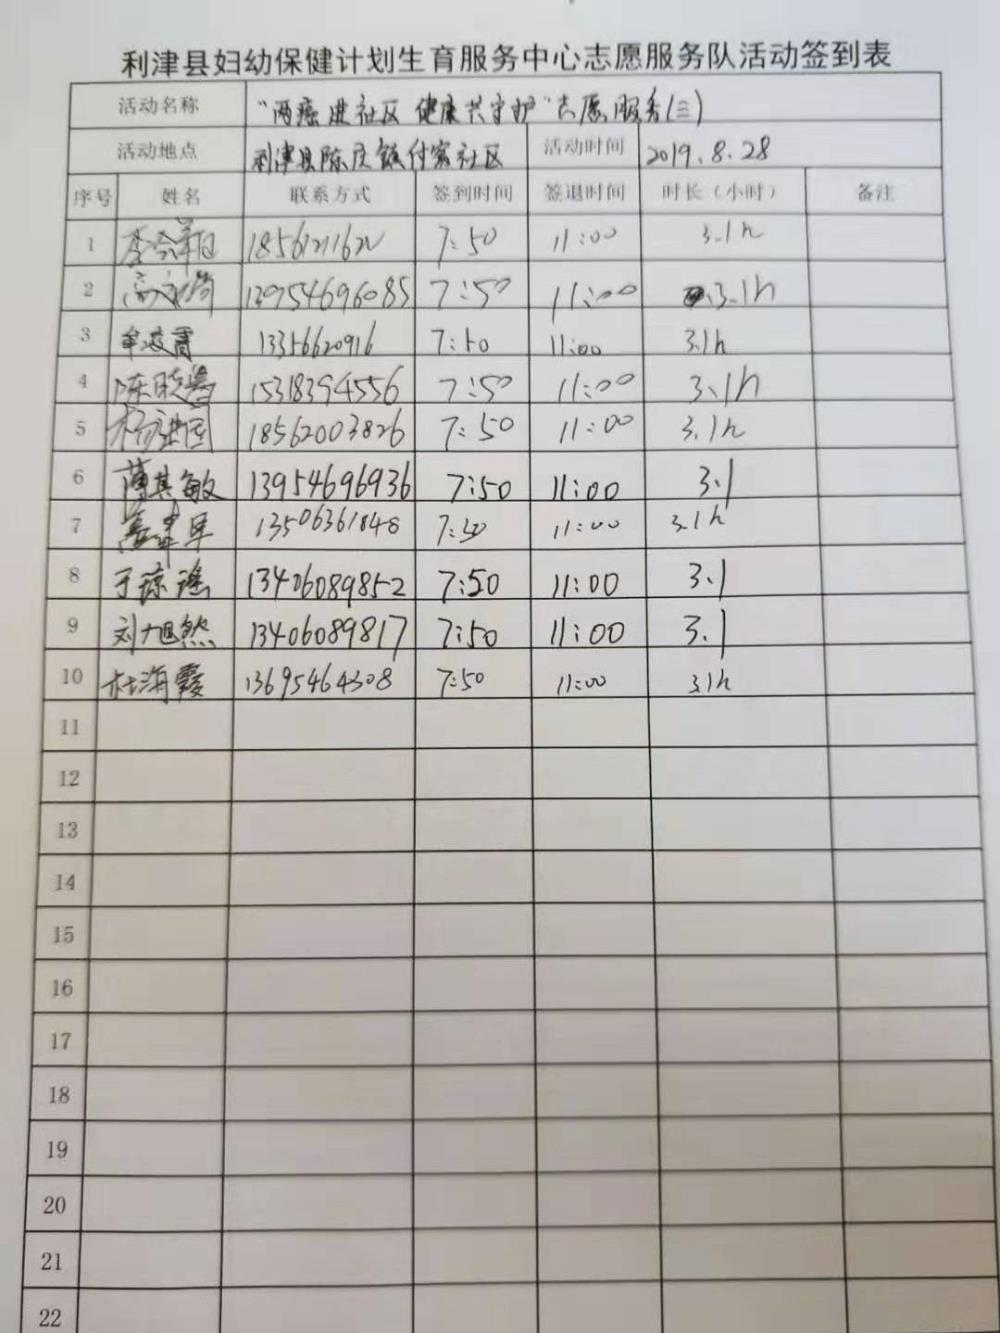 利津县妇幼保健计划生育服务中心志愿服务队活动签到表
活动名称 "两癌进社区 健康共守护"志愿服务(三)
活动地点 利津县陈庄镇付窝社区 活动时间 2019.8.28
序号 姓名 联系方式 签到时间 签退时间 时长（小时） 备注
1 7:50 11:00 3.1h
2 13954696085 7:50 11:00 3.1h
3 13356620916 7:50 11:00 3.1h
4 陈晓 15318394556 7:50 11:00 3.1h
5 杨建国 18562003826 7:50 11:00 3.1h
6 薄其敏 13954696936 7:50 11:00 3.1
7 13506361848 7:50 11:00 3.1h
8 于琼瑶 13406089852 7:50 11:00 3.1
9 刘旭然 13406089817 7:50 11:00 3.1
10 杜海霞 13695464308 7:50 11:00 3.1h
11
12
13
14
15
16
17
18
19
20
21
22